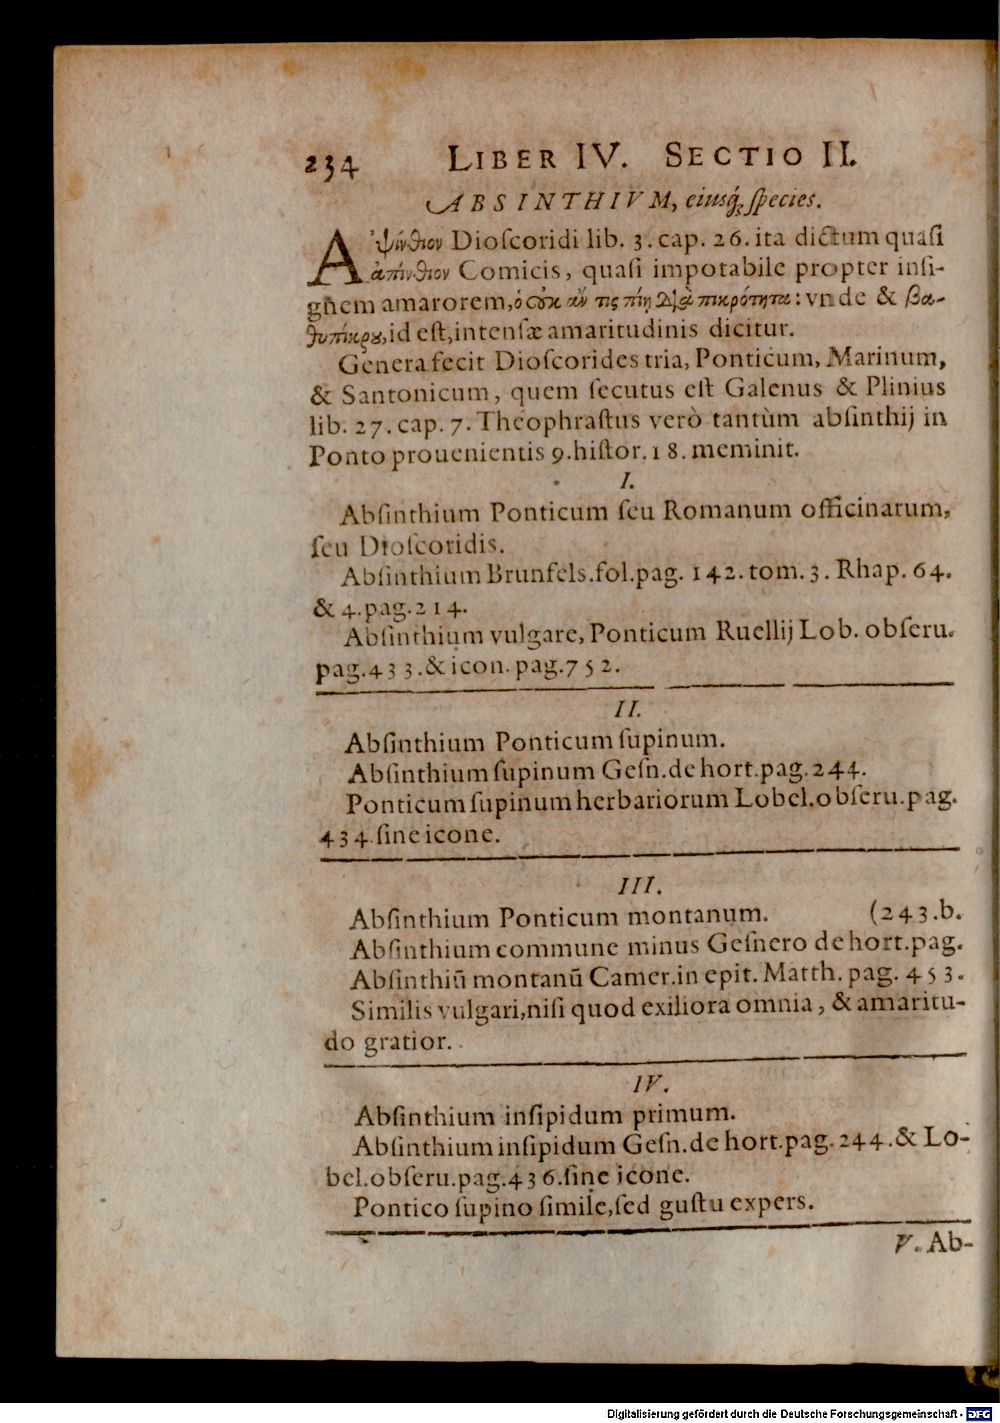 234 LIBER IV. SECTIO II.
ABSINTHIVM, eiusq́; ſpecies.
Ἀψίνθιον Dioſcoridi lib. 3. cap. 26. ita dictum quaſi
ἀπίνθιον Comicis, quaſi impotabile propter inſi-
gnem amarorem, ὁ οὐκ ἄν τις πίῃ διὰ πικρότητα: vnde & βα-
θυπίκρου, id eſt, intenſæ amaritudinis dicitur.
Genera fecit Dioſcorides tria, Ponticum, Marinum,
& Santonicum, quem ſecutus eſt Galenus & Plinius
lib. 27. cap. 7. Theophraſtus verò tantùm abſinthij in
Ponto prouenientis 9. hiſtor. 18. meminit.
I.
Abſinthium Ponticum ſeu Romanum officinarum,
ſeu Dioſcoridis.
Abſinthium Brunfels. fol. pag. 142. tom. 3. Rhap. 64.
& 4. pag. 214.
Abſinthium vulgare, Ponticum Ruellij Lob. obſeru.
pag. 433. & icon. pag. 752.
II.
Abſinthium Ponticum ſupinum.
Abſinthium ſupinum Geſn. de hort. pag. 244.
Ponticum ſupinum herbariorum Lobel. obſeru. pag.
434. ſine icone.
III.
Abſinthium Ponticum montanum. (243. b.
Abſinthium commune minus Geſnero de hort. pag.
Abſinthiū montanū Camer. in epit. Matth. pag. 453.
Similis vulgari, niſi quod exiliora omnia, & amaritu-
do gratior.
IV.
Abſinthium inſipidum primum.
Abſinthium inſipidum Geſn. de hort. pag. 244. & Lo-
bel. obſeru. pag. 436. ſine icone.
Pontico ſupino ſimile, ſed guſtu expers.
V. Ab-
Digitalisierung gefördert durch die Deutsche Forschungsgemeinschaft - DFG